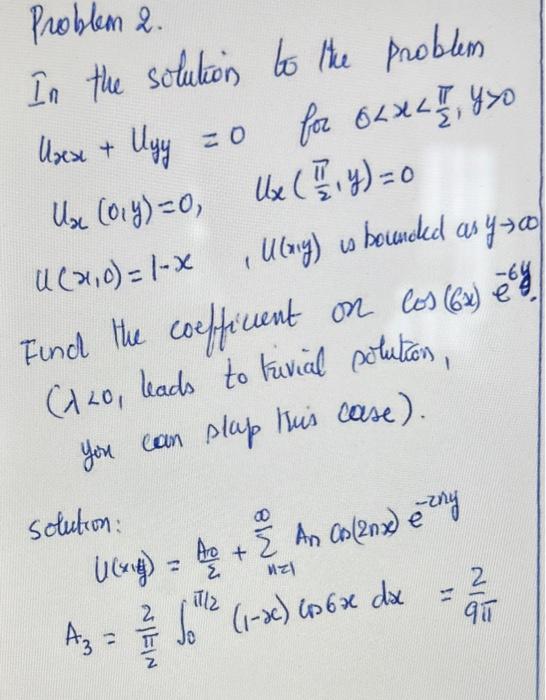 Problem 2.
In the solution to the problem
Uxx + Uyy = 0 for 0<x<π/2, y>0
Ux (0,y)=0, Ux (π/2, y)=0
U(x,0)=1-x , U(x,y) is bounded as y→∞
Find the coefficient on Cos(6x) e^-6y.
(λ<0, leads to trivial solution,
you can skip this case).
solution:
U(x,y) = A0/2 + ∑_{n=1}^{∞} An Cos(2nx) e^-2ny
A3 = 2/(π/2) ∫_0^{π/2} (1-x) cos6x dx = 2/9π